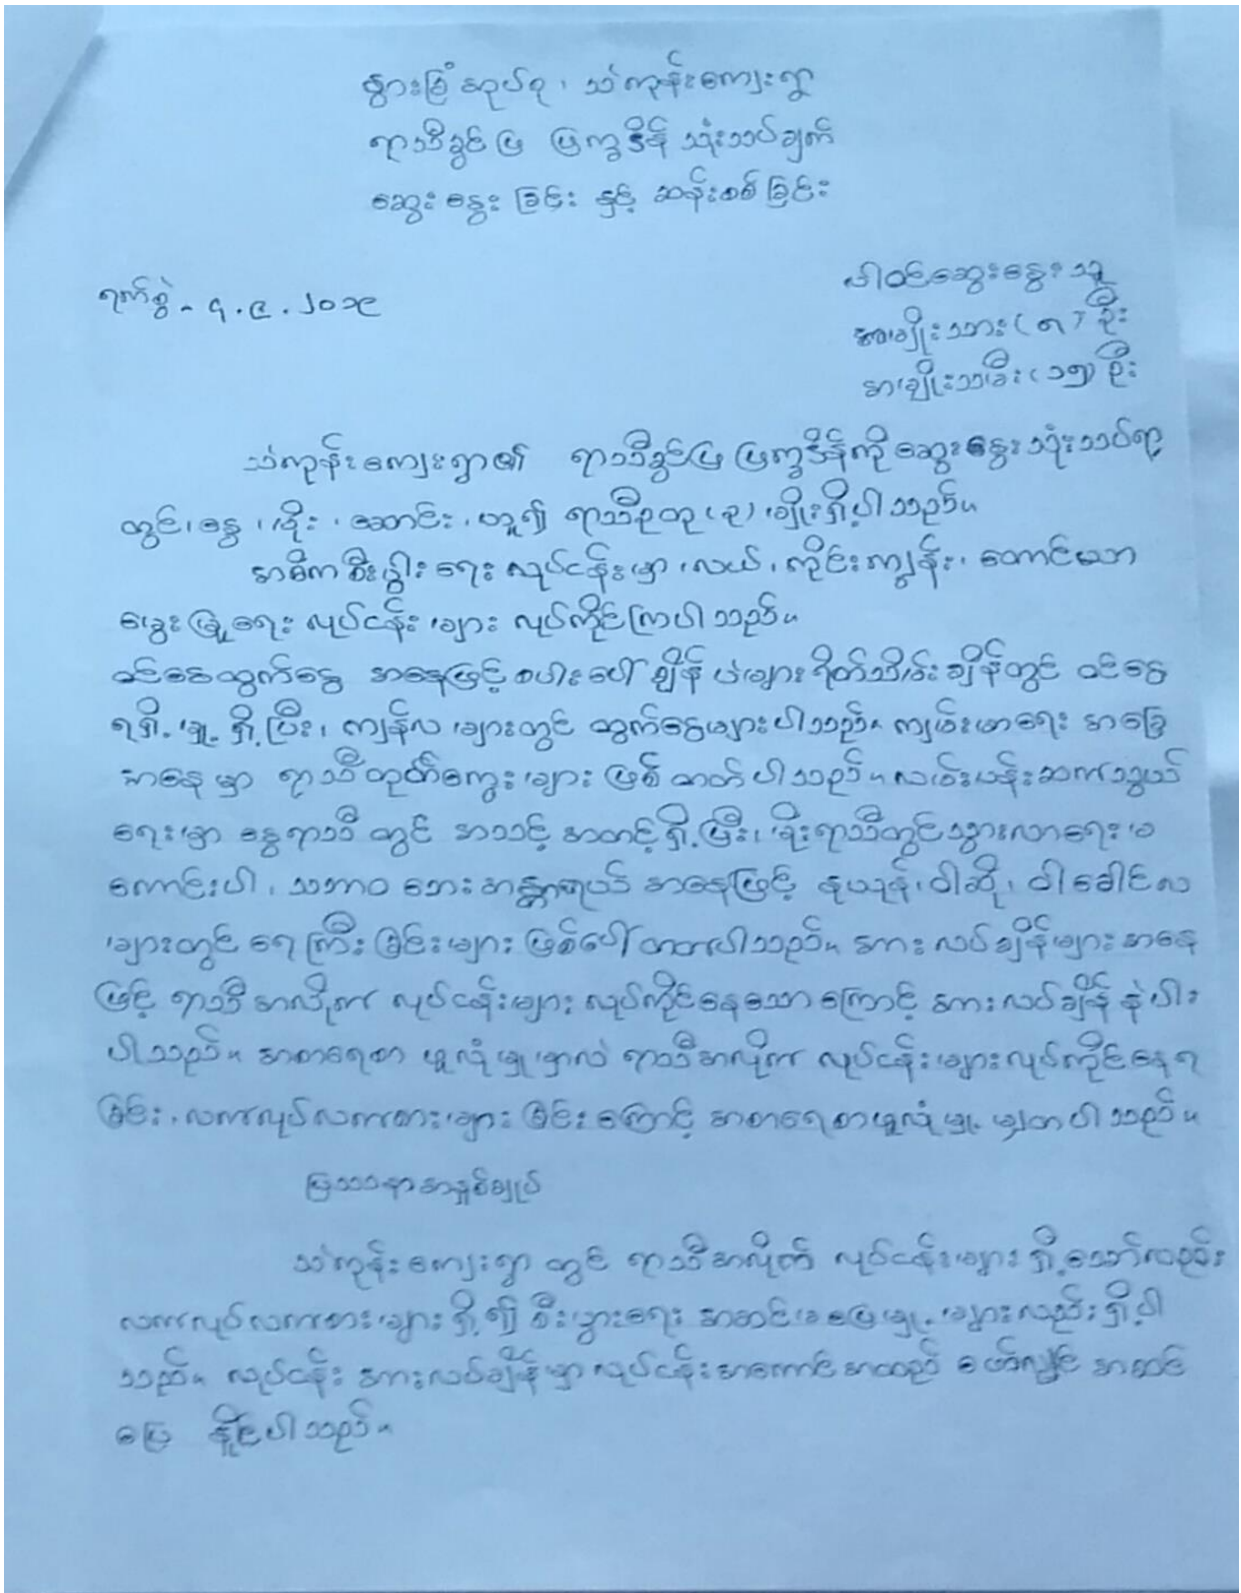 ဖွားခြံ အုပ်စု ၊ သဲကုန်းကျေးရွာ
ရာသီခွင်ပြ ပြက္ခဒိန် သုံးသပ်ချက်
ဆွေးနွေးခြင်း နှင့် ဆန်းစစ်ခြင်း
ပါဝင်ဆွေးနွေးသူ
ရက်စွဲ - ၇.၉.၂၀၁၉
အမျိုးသား (၈) ဦး
အမျိုးသမီး (၁၅) ဦး
သဲကုန်းကျေးရွာ၏ ရာသီခွင်ပြ ပြက္ခဒိန်ကို ဆွေးနွေး သုံးသပ်ရာ
တွင် ၊ နွေ ၊ မိုး ၊ ဆောင်း ၊ ဟူ၍ ရာသီဥတု (၃) မျိုးရှိပါသည်။
အဓိက စီးပွါးရေး လုပ်ငန်းမှာ လယ် ၊ ကိုင်းကျွန်း ၊ တောင်ယာ
မွေးမြူရေး လုပ်ငန်းများ လုပ်ကိုင်ကြပါသည်။
ဝင်ငွေထွက်ငွေ အနေဖြင့် စပါးပေါ်ချိန် ပဲများရိတ်သိမ်းချိန်တွင် ဝင်ငွေ
ရရှိမှု ရှိပြီး ၊ ကျန်လများတွင် ထွက်ငွေများပါသည်။ ကျမ်းမာရေး အခြေ
အနေမှာ ရာသီတုတ်ကွေးများ ဖြစ်တတ်ပါသည်။ လမ်းပန်းဆက်သွယ်
ရေးမှာ နွေရာသီတွင် အသင့်အတင့်ရှိပြီး ၊ မိုးရာသီတွင်သွားလာရေး မ
ကောင်းပါ ၊ သဘာဝ ဘေးအန္တာရယ် အနေဖြင့် နယုန် ၊ ဝါဆို ၊ ဝါခေါင်လ
များတွင် ရေကြီးခြင်းများ ဖြစ်ပေါ်တတ်ပါသည်။ အားလပ်ချိန်များ အနေ
ဖြင့် ရာသီအလိုက် လုပ်ငန်းများ လုပ်ကိုင်နေသောကြောင့် အားလပ်ချိန် နဲပါး
ပါသည်။ အစာရေစာ ဖူလုံမှုမှာလဲ ရာသီအလိုက် လုပ်ငန်းများလုပ်ကိုင်နေရ
ခြင်း ၊ လက်လုပ်လက်စားများ ခြင်းကြောင့် အစာရေစာဖူလုံမှု မျှတပါသည်။
ပြဿနာအနှစ်ချုပ်
သဲကုန်းကျေးရွာတွင် ရာသီအလိုက် လုပ်ငန်းများ ရှိသော်လည်း
လက်လုပ်လက်စားများရှိ၍ စီးပွားရေး အဆင်မပြေမှုများလည်းရှိပါ
သည်။ လုပ်ငန်း အားလပ်ချိန်မှာ လုပ်ငန်းအကောင်အထည် ဖော်လျှင် အဆင်
ပြေ နိုင်ပါသည်။